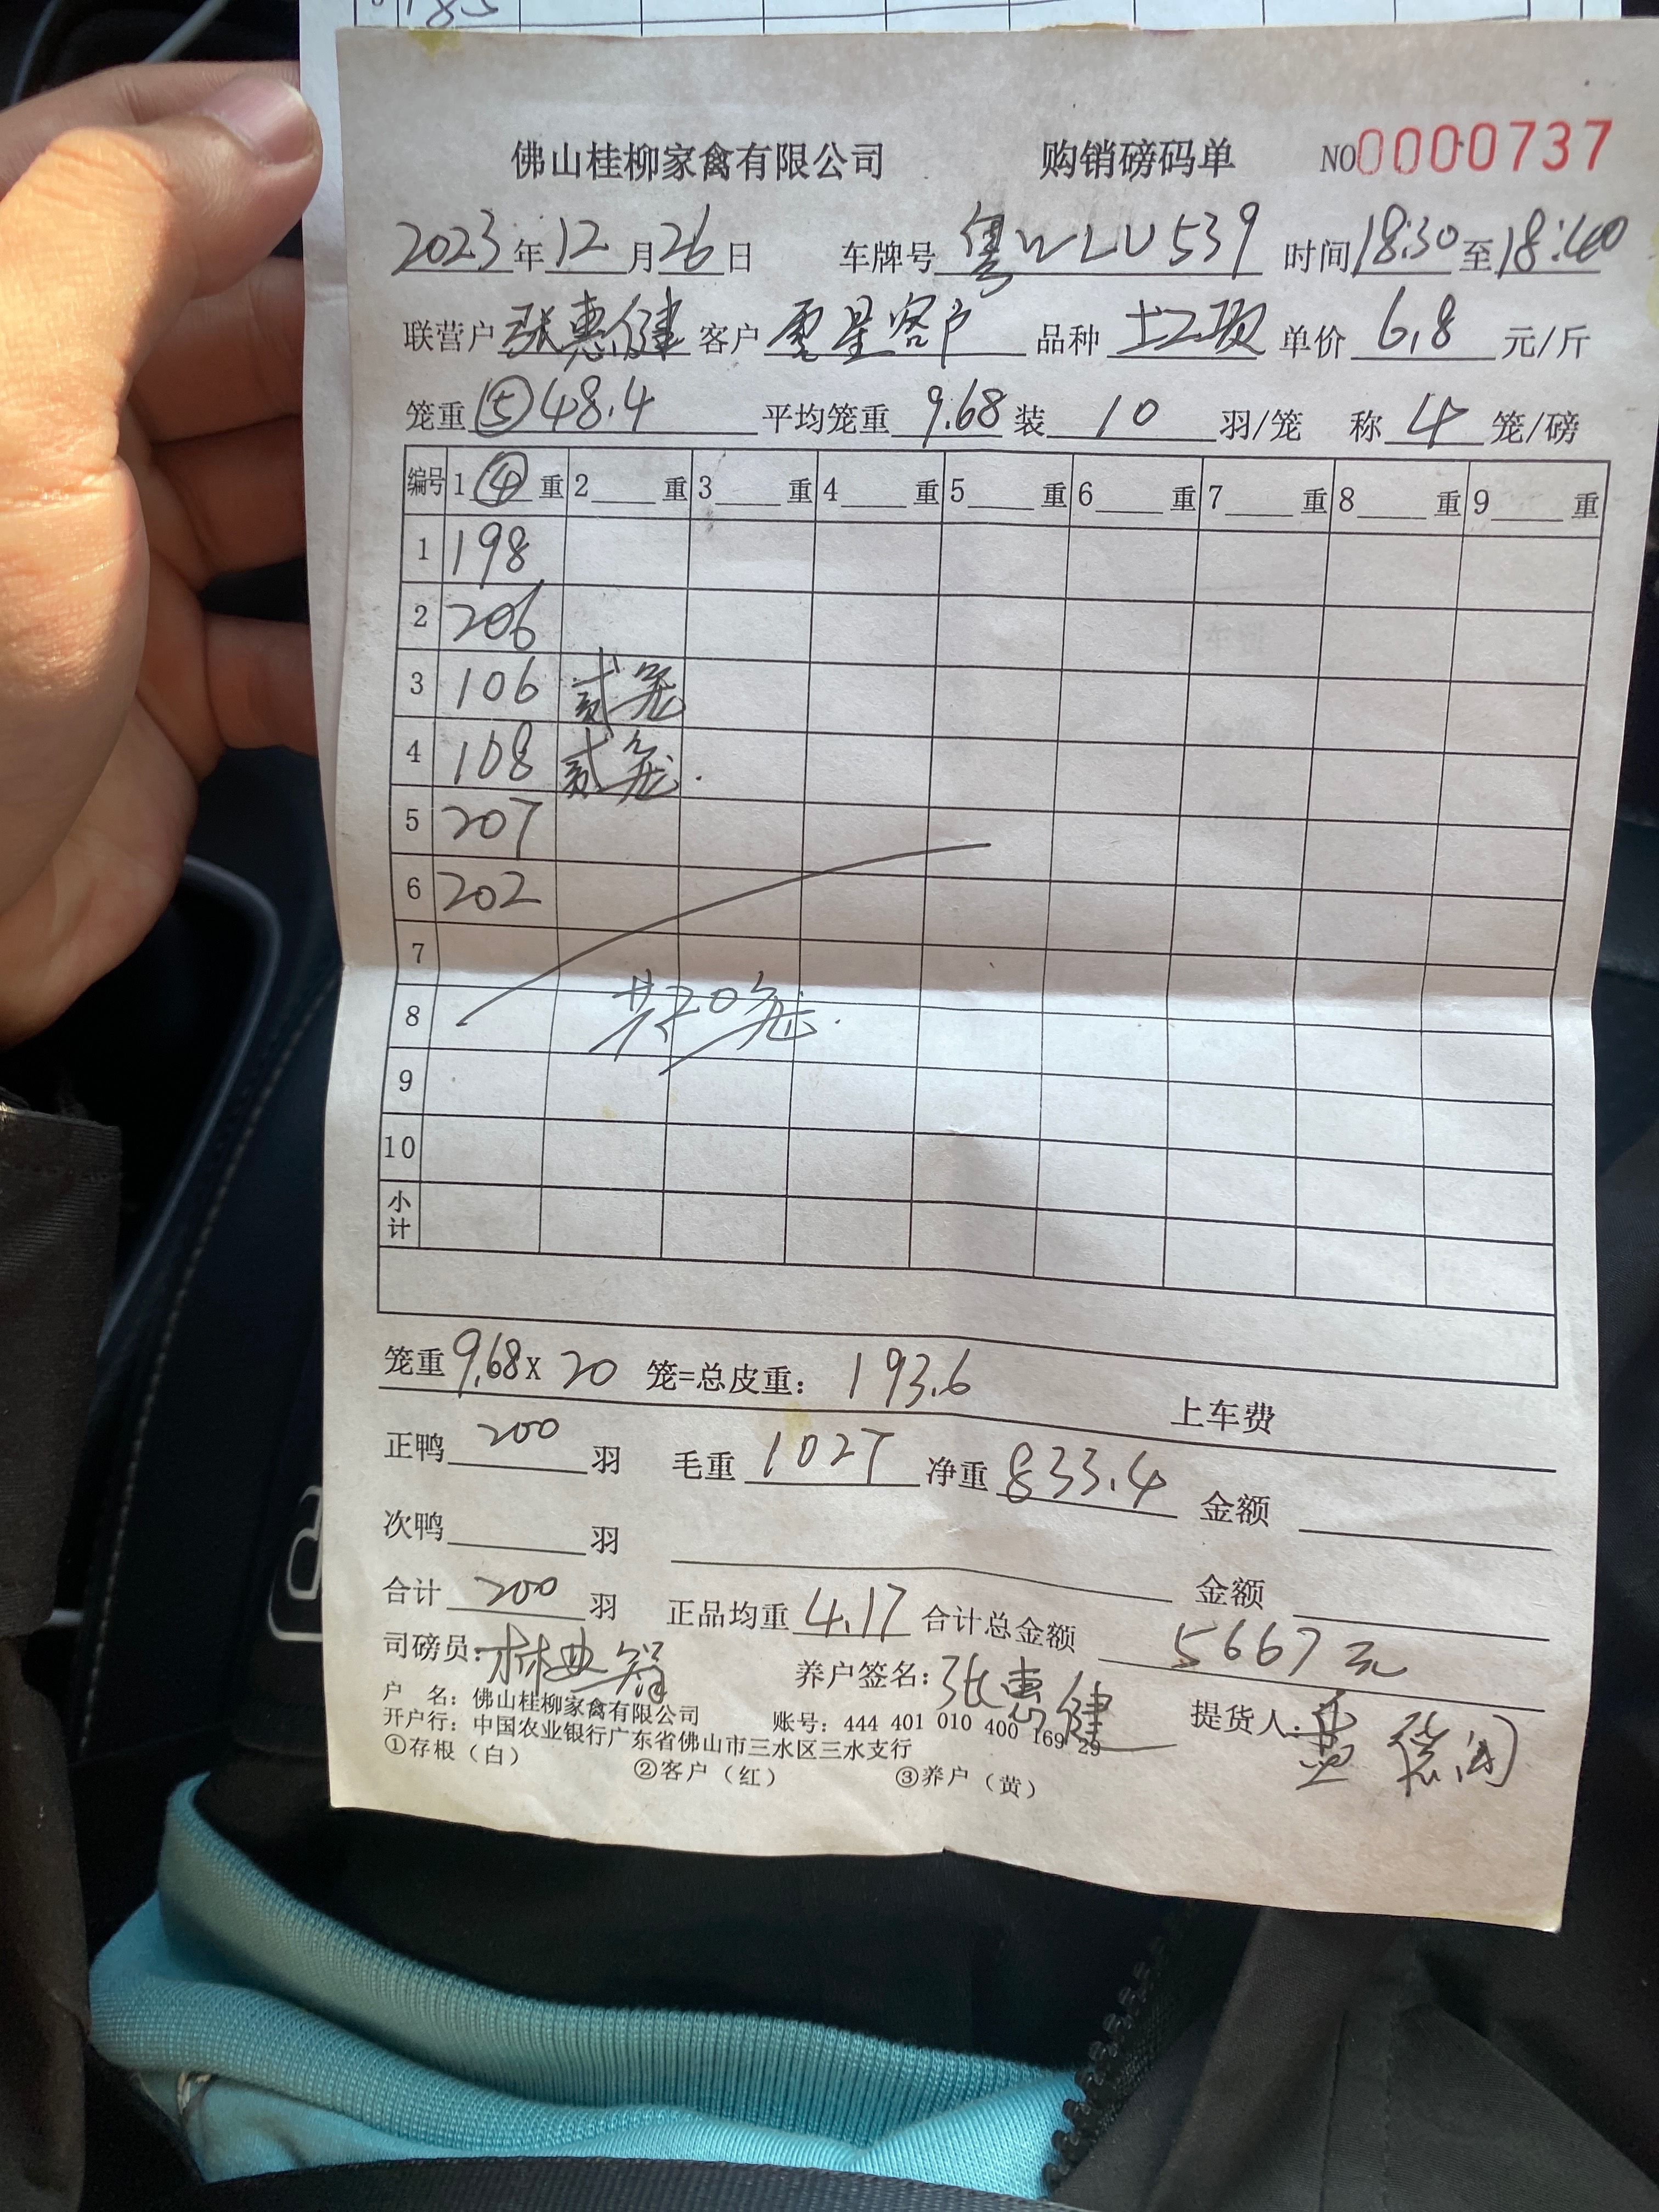 185
佛山桂柳家禽有限公司 购销磅码单 NO0000737
2023年12月26日 车牌号粤WLU539 时间18:30至18:40
联营户张惠健 客户零星客户 品种土2项 单价6.8元/斤
笼重⑤48.4 平均笼重9.68装10羽/笼 称4笼/磅
编号 1④重 2重 3重 4重 5重 6重 7重 8重 9重
1 198
2 206
3 106 贰笼
4 108 贰笼.
5 207
6 202
7
8 共20笼.
9
10
小计
笼重9.68x20笼=总皮重：193.6
上车费
正鸭200羽 毛重1027净重833.4 金额
次鸭羽 金额
合计200羽 正品均重4.17合计总金额5667元
司磅员： 养户签名：张惠健 提货人：
户 名：佛山桂柳家禽有限公司 账号：444 401 010 400 169 29
开户行：中国农业银行广东省佛山市三水区三水支行
①存根（白） ②客户（红） ③养户（黄）